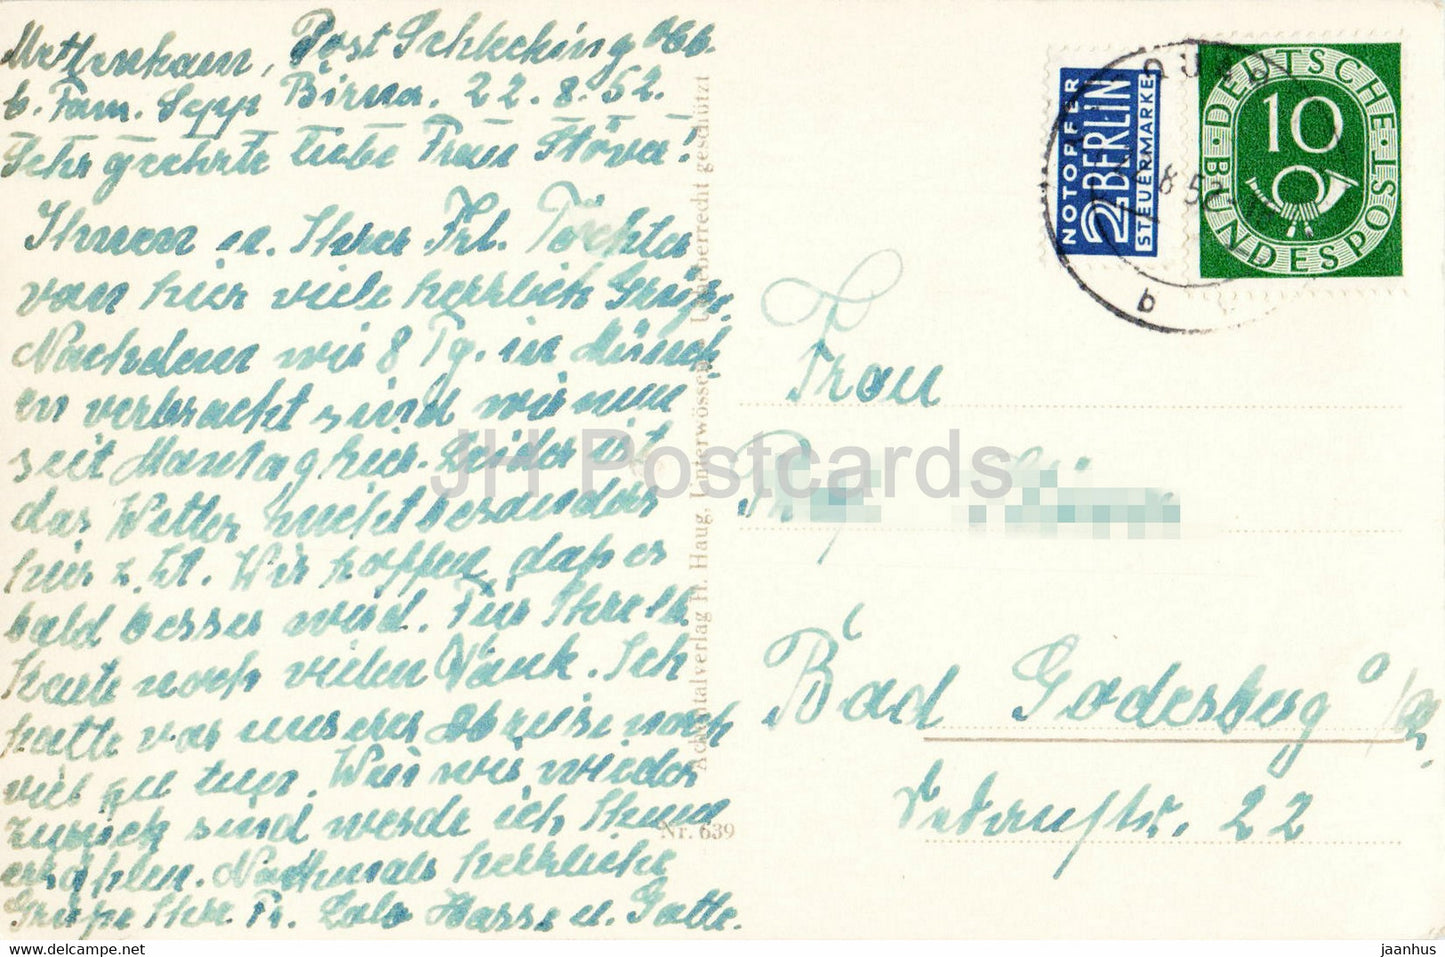 Mettenham, Post Schleching Obb.
b. Fam. Sepp Birna. 22.8.52.
Sehr geehrte liebe Frau Stöva!
Ihnen u. Ihrer Frl. Tochter
von hier viele herzlich Grüße.
Nachdem wir 8 Tg. in Münch
en verbracht sind wir nun
seit Montag hier. Leider ist
das Wetter nicht besonders
hier z. Zt. Wir hoffen, daß es
bald besser wird. Für Ihre lb.
Karte noch vielen Dank. Ich
hatte vor unserer Abreise noch
viel zu tun. Wenn wir wieder
zurück sind werde ich Ihnen
erzählen. Nochmals herzliche
Grüße Ihre Fr. Lolo Hasse u. Gatte.
Achentalverlag H. Haug, Unterwössen Urheberrecht geschützt
Nr. 639
NOTOPFER
2 BERLIN
STEUERMARKE
DEUTSCHE BUNDESPOST
10
8.52
b
Frau
Bad Godesberg
22
JH Postcards
www.hippostcard.com
jaanhus